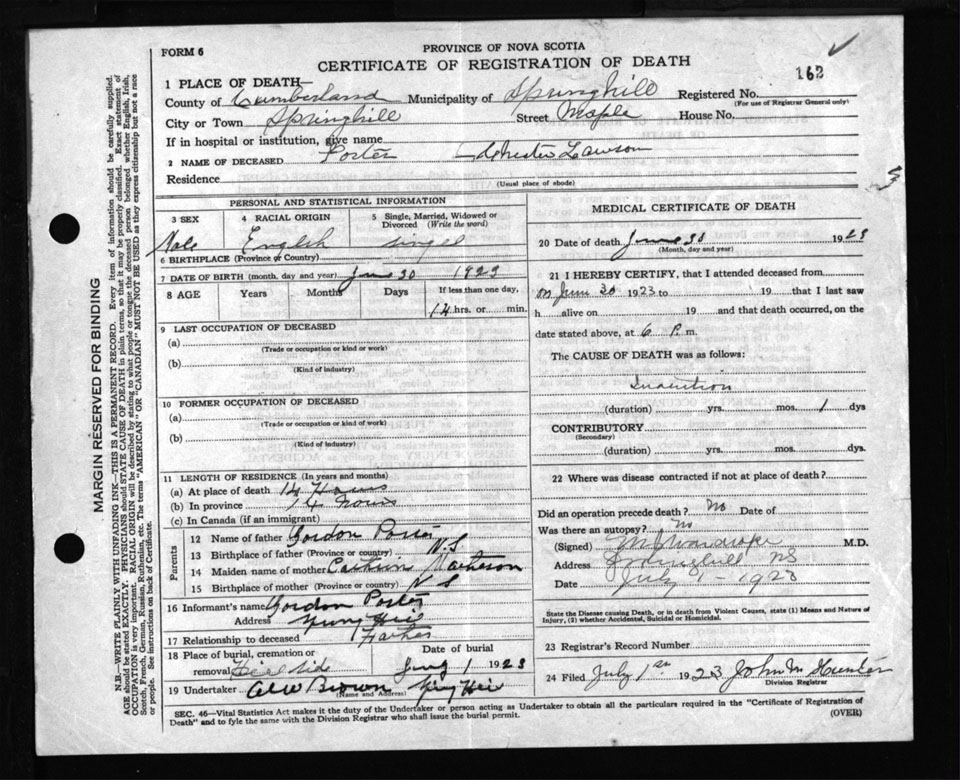 FORM 6
PROVINCE OF NOVA SCOTIA
CERTIFICATE OF REGISTRATION OF DEATH
162
1 PLACE OF DEATH—
County of Cumberland Municipality of Springhill Registered No.
(For use of Registrar General only)
City or Town Springhill Street Maple House No.
If in hospital or institution, give name
2 NAME OF DECEASED Porter Chester Lawson
Residence
(Usual place of abode)
PERSONAL AND STATISTICAL INFORMATION
3 SEX 4 RACIAL ORIGIN 5 Single, Married, Widowed or Divorced (Write the word)
Male English singel
6 BIRTHPLACE (Province or Country)
7 DATE OF BIRTH (month, day and year) June 30 1923
8 AGE Years Months Days If less than one day,
14 hrs. or min.
9 LAST OCCUPATION OF DECEASED
(a)
(Trade or occupation or kind or work)
(b)
(Kind of industry)
10 FORMER OCCUPATION OF DECEASED
(a)
(Trade or occupation or kind or work)
(b)
(Kind of industry)
11 LENGTH OF RESIDENCE (In years and months)
(a) At place of death 14 Hours
(b) In province 14 Hours
(c) In Canada (if an immigrant)
Parents
12 Name of father Gordon Porter
13 Birthplace of father (Province or country) N.S
14 Maiden name of mother Matheson
15 Birthplace of mother (Province or country) N S
16 Informant's name Gordon Porter
Address
17 Relationship to deceased Father
18 Place of burial, cremation or Date of burial
removal Hillside July 1 1923
19 Undertaker Brown
(Name and Address)
MEDICAL CERTIFICATE OF DEATH
20 Date of death June 30 1923
(Month, day and year)
21 I HEREBY CERTIFY, that I attended deceased from
on June 30 1923 to 19 that I last saw
h alive on 19 and that death occurred, on the
date stated above, at 6 P. m.
The CAUSE OF DEATH was as follows:
Inanition
(duration) yrs. mos. 1 dys
CONTRIBUTORY
(Secondary)
(duration) yrs. mos. dys.
22 Where was disease contracted if not at place of death?
Did an operation precede death? No Date of
Was there an autopsy? No
(Signed) M.D.
Address Springhill NS
Date July 1 - 1923
State the Disease causing Death, or in death from Violent Causes, state (1) Means and Nature of
Injury, (2) whether Accidental, Suicidal or Homicidal.
23 Registrar's Record Number
24 Filed July 1st 1923 John M Hunter
Division Registrar
SEC. 46—Vital Statistics Act makes it the duty of the Undertaker or person acting as Undertaker to obtain all the particulars required in the "Certificate of Registration of
Death" and to fyle the same with the Division Registrar who shall issue the burial permit.
(OVER)
MARGIN RESERVED FOR BINDING
N.B.—WRITE PLAINLY WITH UNFADING INK—THIS IS A PERMANENT RECORD. Every item of information should be carefully supplied.
AGE should be stated EXACTLY. PHYSICIANS should STATE CAUSE OF DEATH in plain terms, so that it may be properly classified. Exact statement of
OCCUPATION is very important. RACIAL ORIGIN will be described by stating to what people or tongue the deceased person belonged whether English, Irish,
Scotch, French, German, Russian, Ruthenian, etc. The terms "AMERICAN" OR "CANADIAN" MUST NOT BE USED as they express citizenship but not a race
or people. See instructions on back of Certificate.